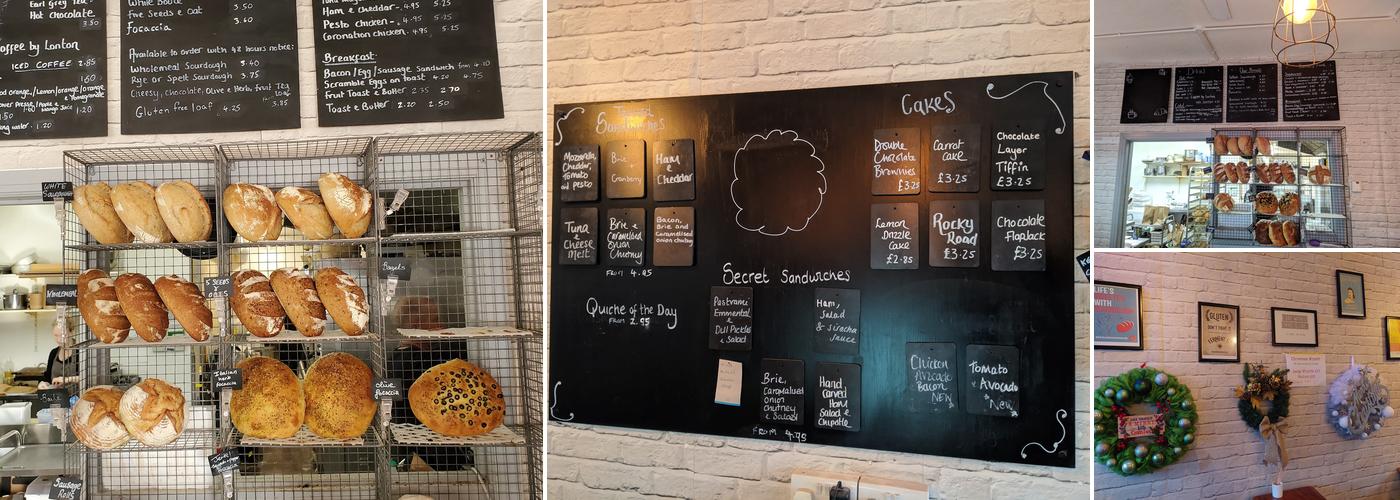 Earl Grey Tea
Hot Chocolate
3.50
Coffee by Lonton
ICED COFFEE 2.85
1.60
1.20
1.20
White Boule
3.50
Five Seeds & Oat
3.60
Focaccia
Available to order with 48 hours notice:
Wholemeal Sourdough 3.40
Rye or Spelt Sourdough 3.75
Cheesy, chocolate, Olive & Herb, fruit
Gluten free loaf 4.25
3.85
Ham & cheddar - 4.95 5.25
Pesto chicken - 4.95 5.25
Coronation chicken. 4.95 5.25
Breakfast:
Bacon/Egg/Sausage Sandwich from 4.20
Scramble Eggs on toast 4.20 4.75
Fruit Toast & Butter 2.35 2.70
Toast & Butter 2.20 2.50
WHITE
Sourdough
Wholemeal
5 SEEDS
& OATS
Bagels
Italian
herb
focaccia
Olive
focaccia
Sausage
Rolls
Toasted
Sandwiches
Mozzarella,
Cheddar,
Tomato
and pesto
Brie
+
Cranberry
Ham
&
Cheddar
Tuna
&
Cheese
Melt
Brie &
Caramelised
Onion
Chutney
Bacon,
Brie and
Caramelised
onion chutney
FROM 4.85
Quiche of the Day
FROM 2.95
Secret Sandwiches
Pastrami
Emmental
&
Dill Pickle
& Salad
Ham,
Salad
& siracha
Sauce
Brie,
Caramalised
onion
chutney
& Salad
Hand
carved
Ham
Salad &
Chipotle
FROM 4.95
Cakes
Double
Chocolate
Brownies
£3.25
Carrot
cake
£3.25
Chocolate
Layer
Tiffin
£3.25
Lemon
Drizzle
Cake
£2.85
Rocky
Road
£3.25
Chocolate
Flapjack
£3.25
Chicken
Avocado
Bacon
NEW
Tomato
&
Avocado
New
LIFE'S
WITH
GLUTEN